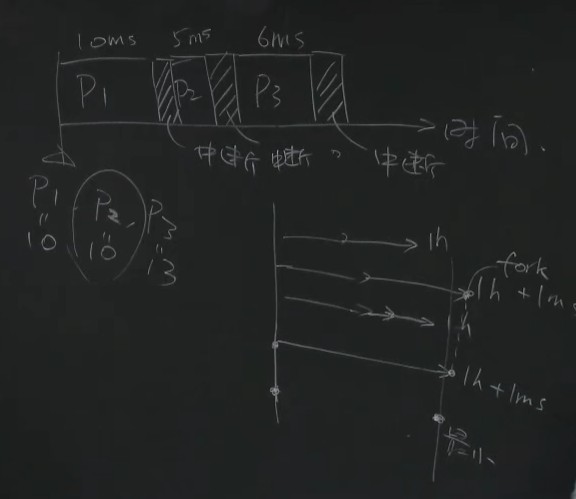 10ms 5ms 6ms
P1 P2 P3
时间.
中断 中断 中断
P1 P2, P3
" " "
10 10 13
1h
fork
1h+1ms
h
1h+1ms